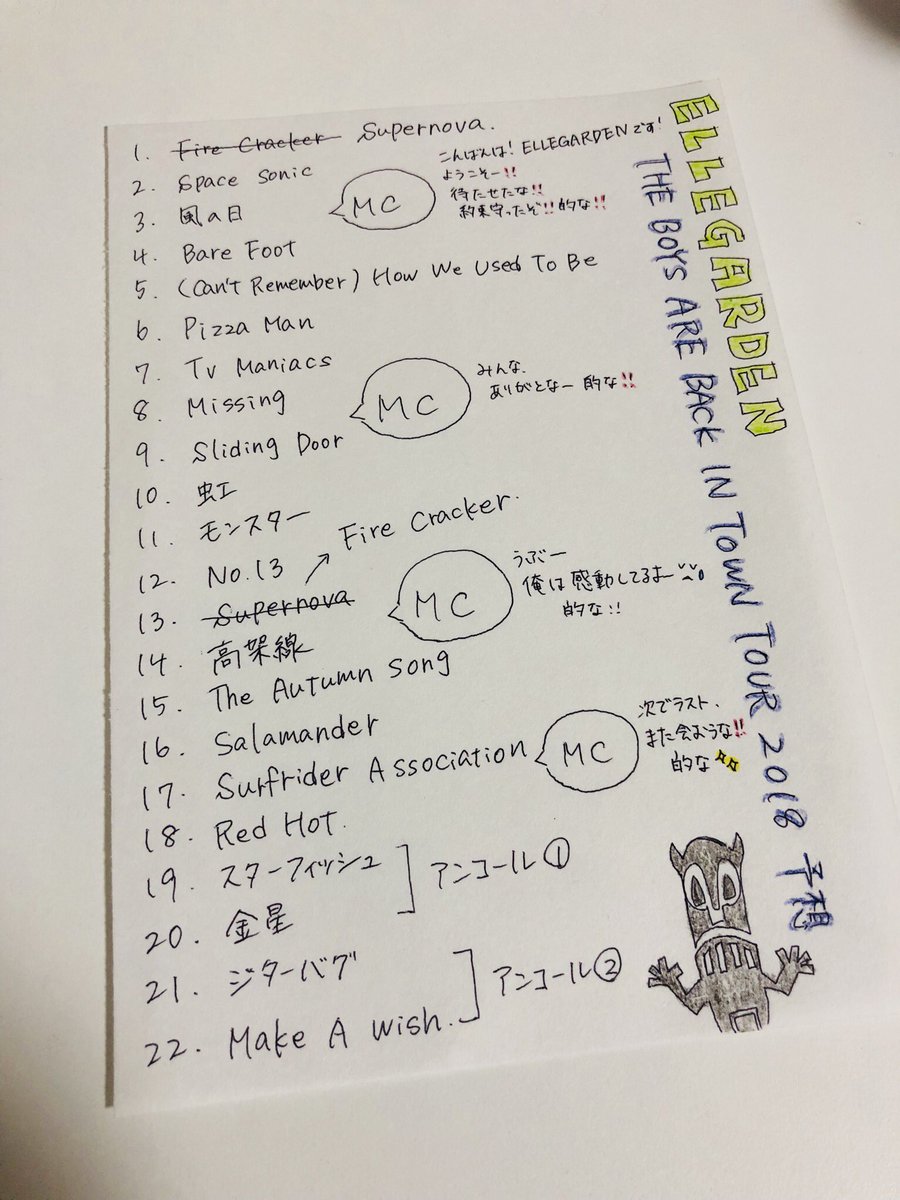 ELLEGARDEN
THE BOYS ARE BACK IN TOWN TOUR 2018 予想
1. Fire Cracker Supernova.
2. Space Sonic
3. 風の日
MC
こんばんは! ELLEGARDENです!
ようこそー!!
待たせたな!!
約束守ったぞ!!的な!!
4. Bare Foot
5. (Can't Remember) How We Used To Be
6. Pizza Man
7. Tv Maniacs
8. Missing
MC
みんな、
ありがとなー 的な!!
9. Sliding Door
10. 虹
11. モンスター
12. No.13
13. Supernova → Fire Cracker.
MC
うぶー
俺は感動してるよー
的な!!
14. 高架線
15. The Autumn Song
16. Salamander
17. Surfrider Association
MC
次でラスト、
また会おうな!!
的な
18. Red Hot.
19. スターフィッシュ
20. 金星
アンコール①
21. ジターバグ
22. Make A Wish.
アンコール②